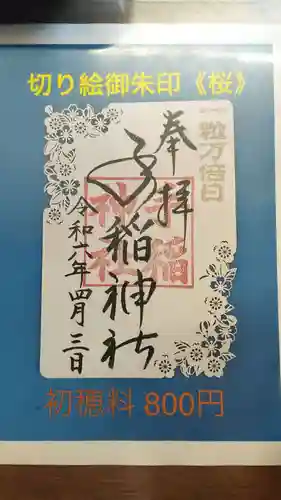 切り絵御朱印《桜》
一粒万倍日
奉拝
子稲神社
子稲
神社
令和六年四月三日
初穂料 800円